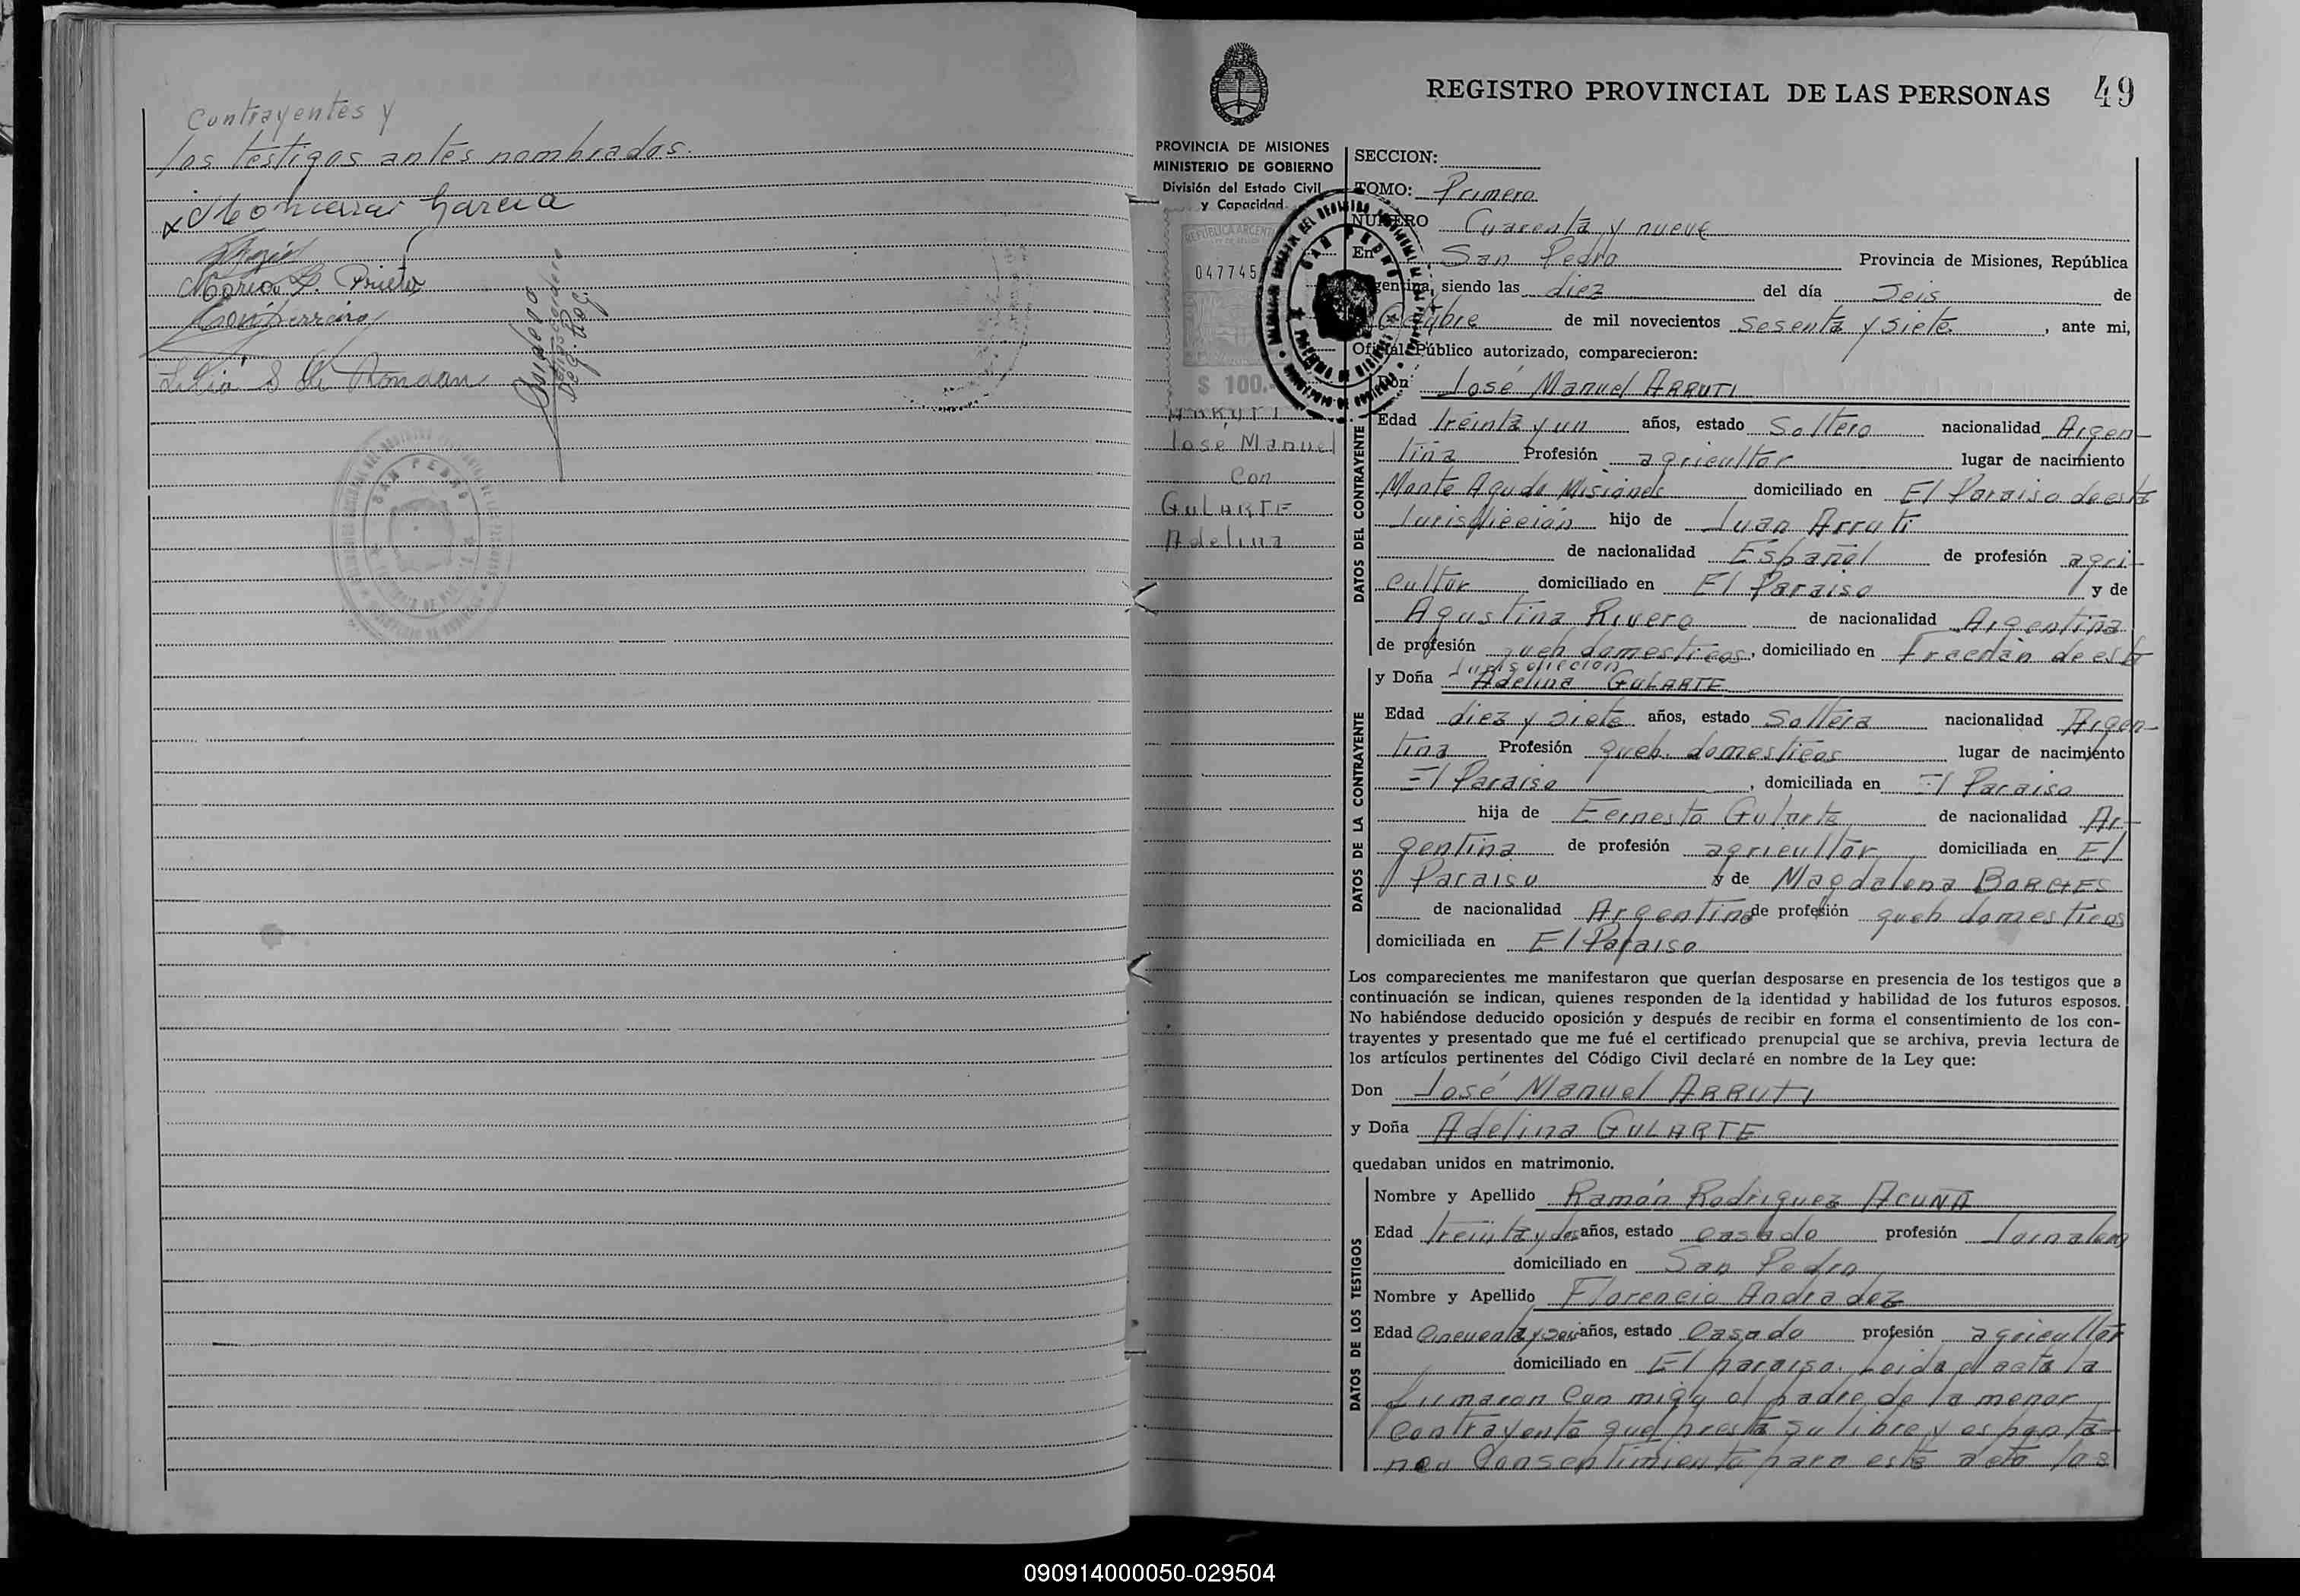 Contrayentes y
los testigos antes nombrados.
Garcia
Maria Prieto
Ferreira
S de Rondan
SAN PEDRO
REGISTRO PROVINCIAL DE LAS PERSONAS 49
PROVINCIA DE MISIONES
MINISTERIO DE GOBIERNO
División del Estado Civil
y Capacidad
REPUBLICA ARGENTI
047745
$ 100.-
SAN PEDRO
ARRUTI
José Manuel
Con
GULARTE
Adelina
SECCION:
TOMO: Primero
NUMERO Cuarenta y nueve
En San Pedro Provincia de Misiones, República
Argentina, siendo las diez del día Seis de
Octubre de mil novecientos Sesenta y siete, ante mi,
Oficial Público autorizado, comparecieron:
Don José Manuel ARRUTI
DATOS DEL CONTRAYENTE
Edad treinta y un años, estado Soltero nacionalidad Argen-
tina Profesión agricultor lugar de nacimiento
Monte Agudo Misiones domiciliado en El Paraiso de esta
Jurisdicción hijo de Juan Arruti
de nacionalidad Español de profesión agri-
cultor domiciliado en El Paraiso y de
Agustina Rivero de nacionalidad Argentina
de profesión queh domesticos, domiciliado en Fracrán de esta
Jurisdicción
y Doña Adelina GULARTE
DATOS DE LA CONTRAYENTE
Edad diez y siete años, estado Soltera nacionalidad Argen-
tina Profesión queh. domesticos lugar de nacimiento
El Paraiso, domiciliada en El Paraiso
hija de Eernesto Gularte de nacionalidad Ar-
gentina de profesión agricultor domiciliada en El
Paraiso y de Magdalena BORGES
de nacionalidad Argentina de profesión queh domesticos
domiciliada en El Paraiso
Los comparecientes me manifestaron que querían desposarse en presencia de los testigos que a
continuación se indican, quienes responden de la identidad y habilidad de los futuros esposos.
No habiéndose deducido oposición y después de recibir en forma el consentimiento de los con-
trayentes y presentado que me fué el certificado prenupcial que se archiva, previa lectura de
los artículos pertinentes del Código Civil declaré en nombre de la Ley que:
Don José Manuel ARRUTI
y Doña Adelina GULARTE
quedaban unidos en matrimonio.
DATOS DE LOS TESTIGOS
Nombre y Apellido Ramón Rodriguez ACUÑA
Edad treinta y dos años, estado casado profesión Jornalero
domiciliado en San Pedro
Nombre y Apellido Florencio Andradez
Edad Cincuenta y seis años, estado Casado profesión agricultor
domiciliado en El paraiso. Leida el acta la
firmaron con migo y el padre de la menor
Contrayente que presta su libre y espontá-
neo Consentimiento para este acto los
090914000050-029504